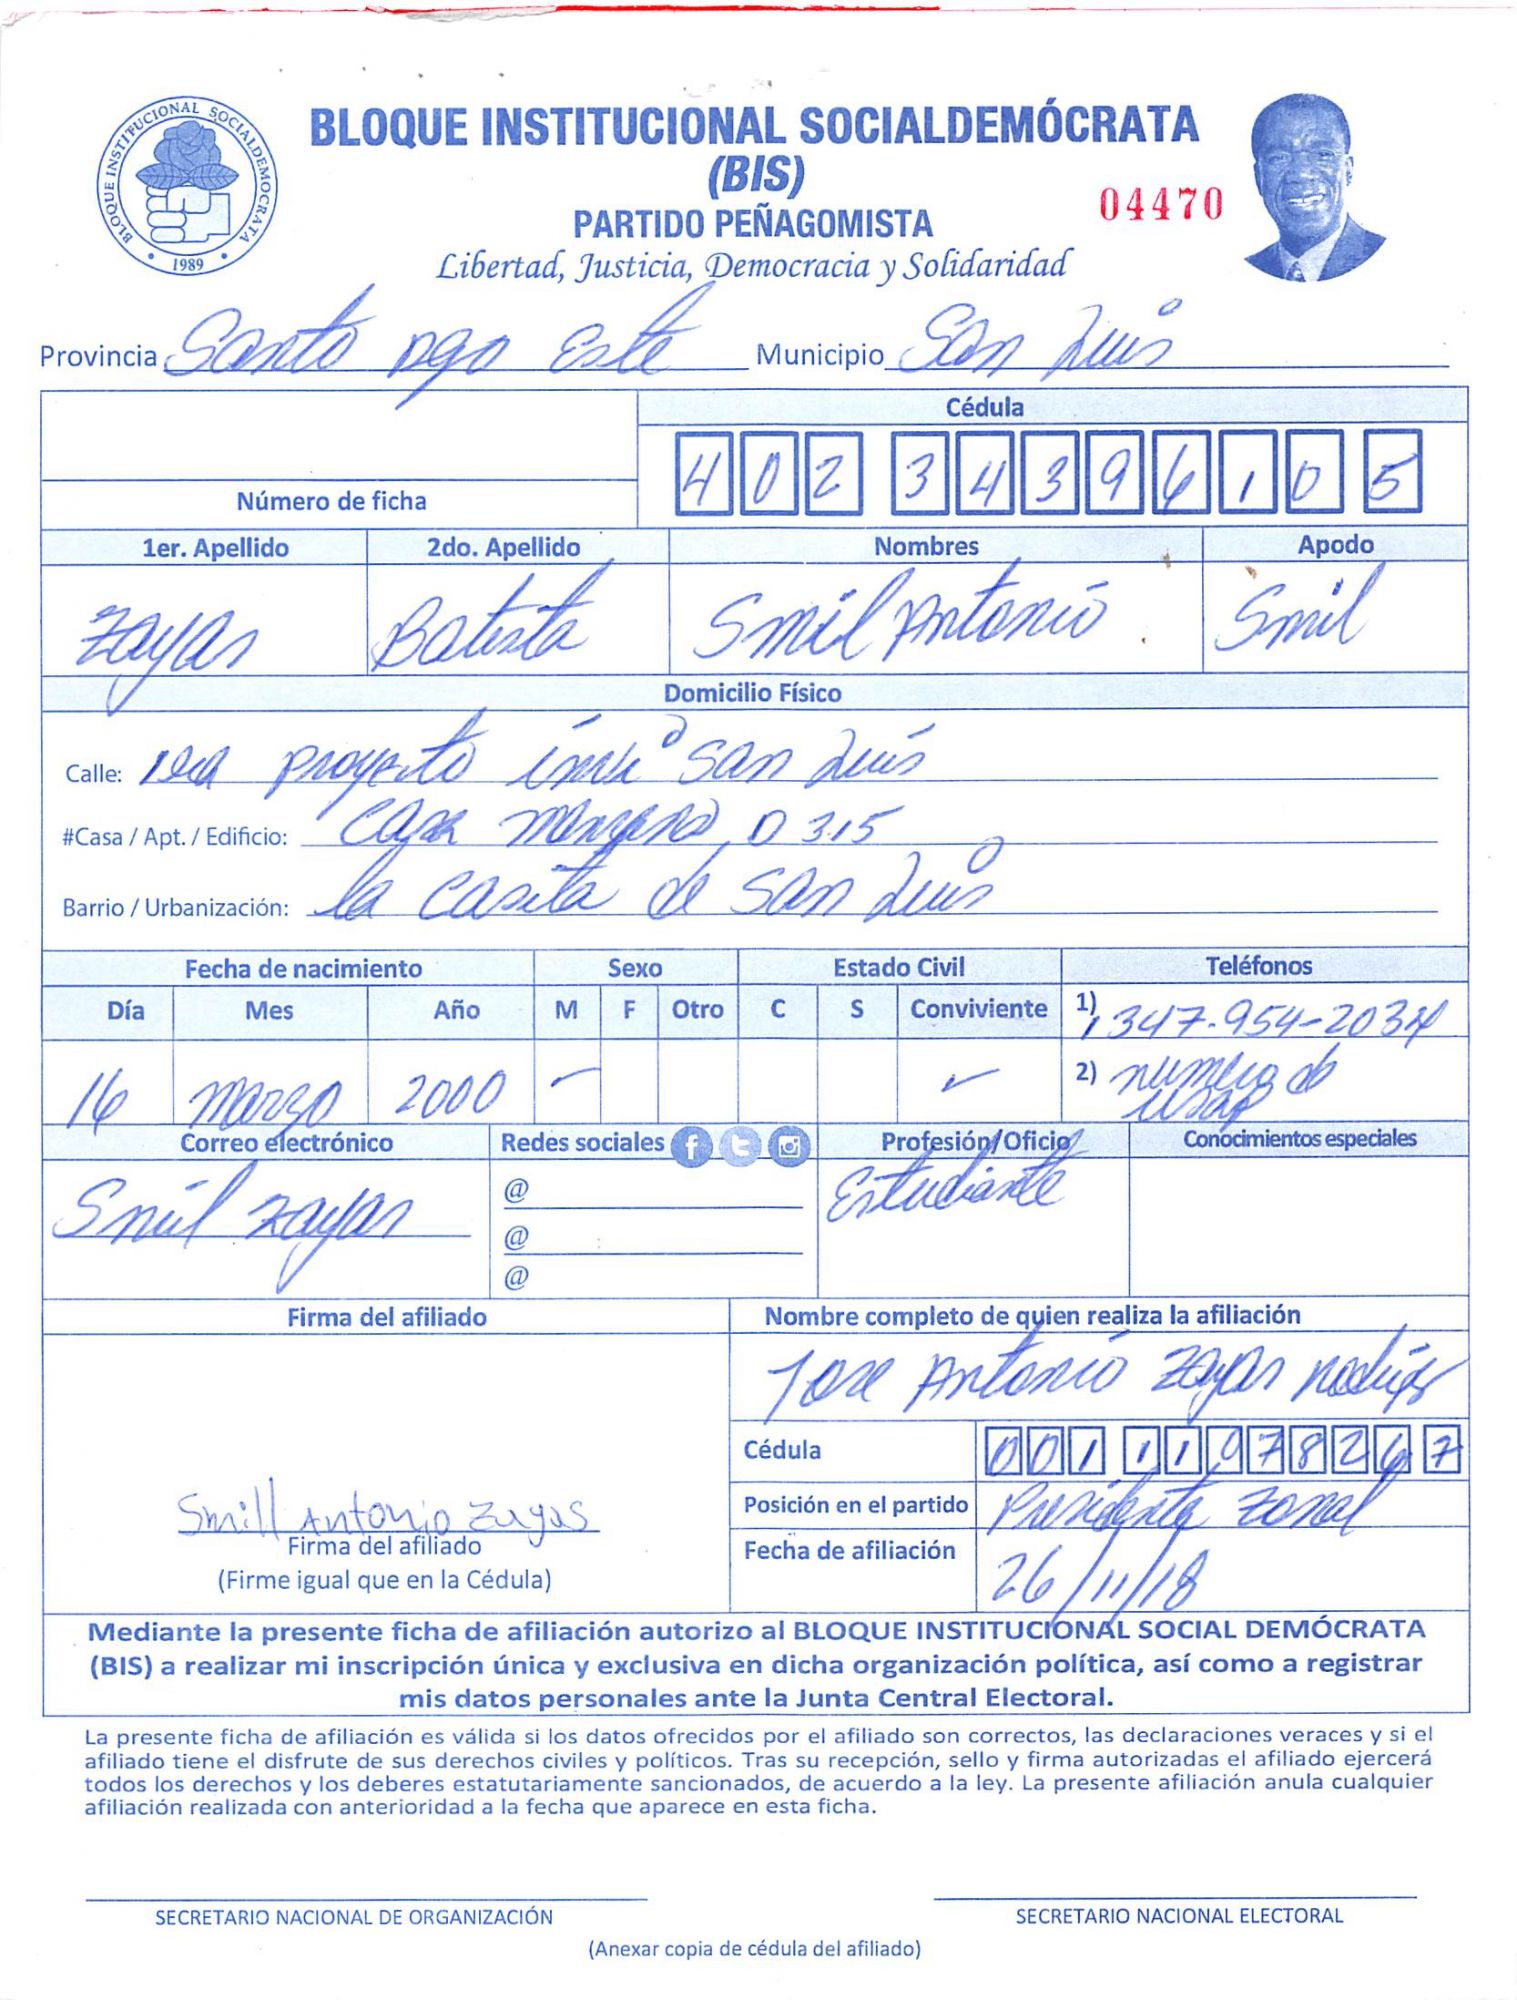 BLOQUE INSTITUCIONAL SOCIALDEMOCRATA
1989
BLOQUE INSTITUCIONAL SOCIALDEMÓCRATA
(BIS)
04470
PARTIDO PEÑAGOMISTA
Libertad, Justicia, Democracia y Solidaridad
Provincia Santo Dgo Este Municipio San Luis
Cédula
4 0 2 3 4 3 9 6 1 0 5
Número de ficha
1er. Apellido 2do. Apellido Nombres Apodo
Zayas Batista Smil Antonio Smil
Domicilio Físico
Calle: 1era proyecto invi San Luis
#Casa / Apt. / Edificio: Casa manzana D 315
Barrio / Urbanización: la Casita de San Luis
Fecha de nacimiento Sexo Estado Civil Teléfonos
Día Mes Año M F Otro C S Conviviente 1) 1 347-954-2034
16 marzo 2000 2) numero de
Correo electrónico Redes sociales Profesión/Oficio Conocimientos especiales
Smil Zayas @ Estudiante
@
@
Firma del afiliado Nombre completo de quien realiza la afiliación
Jose Antonio Zayas
Cédula 0 0 1 1 1 0 7 8 2 6 7
Smill Antonio Zayas Posición en el partido Presidente Zonal
Firma del afiliado Fecha de afiliación 26/11/18
(Firme igual que en la Cédula)
Mediante la presente ficha de afiliación autorizo al BLOQUE INSTITUCIONAL SOCIAL DEMÓCRATA
(BIS) a realizar mi inscripción única y exclusiva en dicha organización política, así como a registrar
mis datos personales ante la Junta Central Electoral.
La presente ficha de afiliación es válida si los datos ofrecidos por el afiliado son correctos, las declaraciones veraces y si el
afiliado tiene el disfrute de sus derechos civiles y políticos. Tras su recepción, sello y firma autorizadas el afiliado ejercerá
todos los derechos y los deberes estatutariamente sancionados, de acuerdo a la ley. La presente afiliación anula cualquier
afiliación realizada con anterioridad a la fecha que aparece en esta ficha.
SECRETARIO NACIONAL DE ORGANIZACIÓN SECRETARIO NACIONAL ELECTORAL
(Anexar copia de cédula del afiliado)